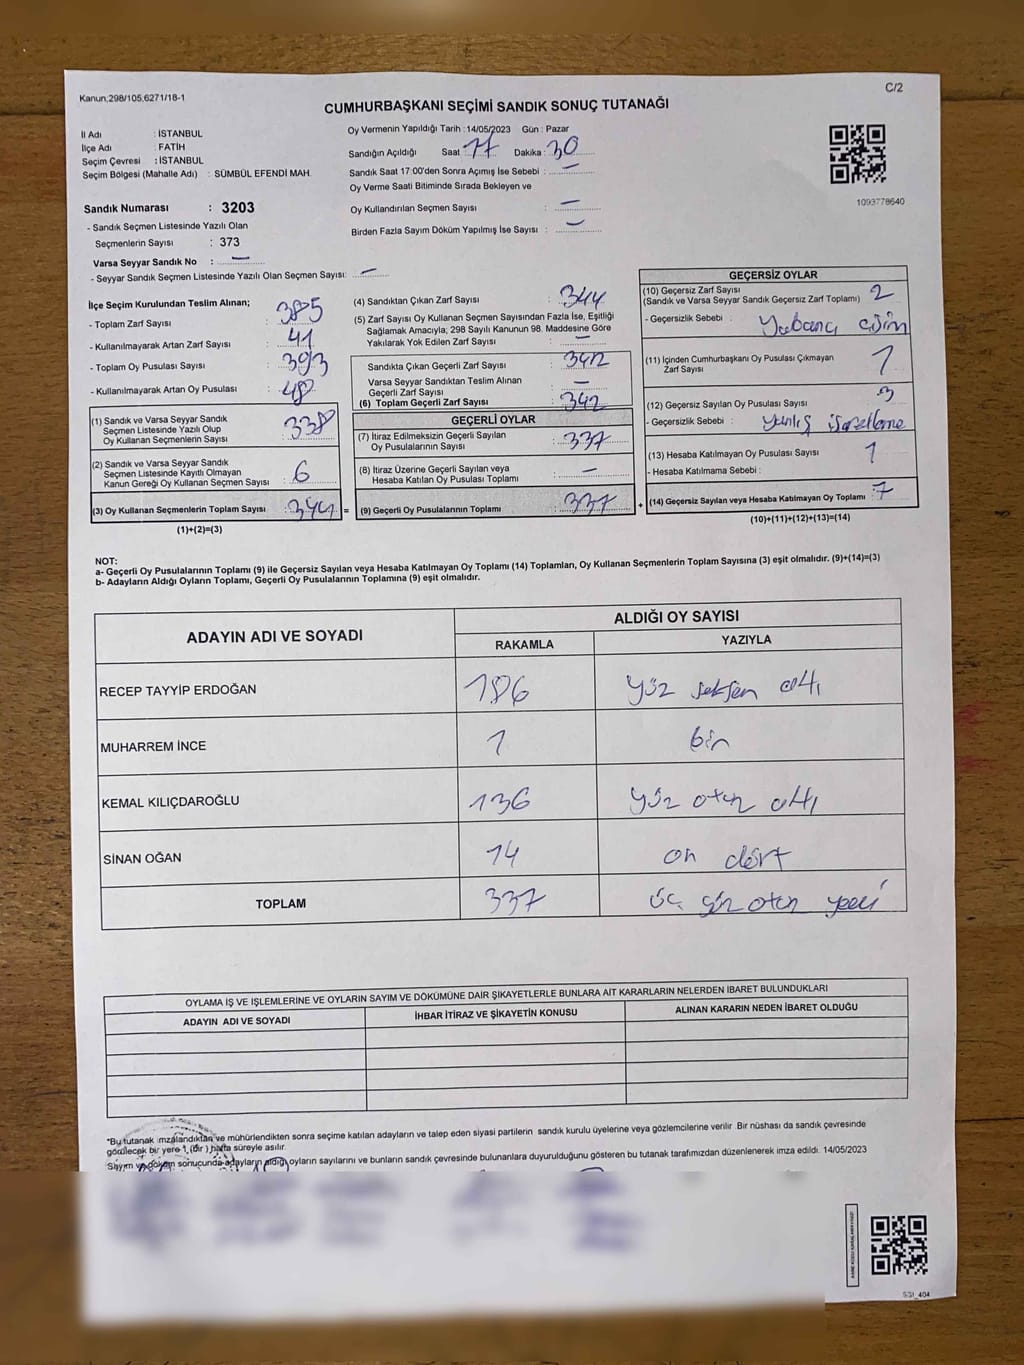 Kanun;298/105,6271/18-1
C/2
CUMHURBAŞKANI SEÇİMİ SANDIK SONUÇ TUTANAĞI
İl Adı : İSTANBUL
İlçe Adı : FATİH
Seçim Çevresi : İSTANBUL
Seçim Bölgesi (Mahalle Adı) : SÜMBÜL EFENDİ MAH.
Oy Vermenin Yapıldığı Tarih :14/05/2023 Gün : Pazar
Sandığın Açıldığı Saat : 17 Dakika : 30
Sandık Saat 17:00'den Sonra Açımış İse Sebebi : —
Oy Verme Saati Bitiminde Sırada Bekleyen ve
Oy Kullandırılan Seçmen Sayısı : —
Birden Fazla Sayım Döküm Yapılmış İse Sayısı : —
1093778640
Sandık Numarası : 3203
- Sandık Seçmen Listesinde Yazılı Olan
Seçmenlerin Sayısı : 373
Varsa Seyyar Sandık No : —
- Seyyar Sandık Seçmen Listesinde Yazılı Olan Seçmen Sayısı: —
İlçe Seçim Kurulundan Teslim Alınan;
- Toplam Zarf Sayısı : 385
- Kullanılmayarak Artan Zarf Sayısı : 41
- Toplam Oy Pusulası Sayısı : 393
- Kullanılmayarak Artan Oy Pusulası : 48
(1) Sandık ve Varsa Seyyar Sandık
Seçmen Listesinde Yazılı Olup
Oy Kullanan Seçmenlerin Sayısı : 338
(2) Sandık ve Varsa Seyyar Sandık
Seçmen Listesinde Kayıtlı Olmayan
Kanun Gereği Oy Kullanan Seçmen Sayısı : 6
(3) Oy Kullanan Seçmenlerin Toplam Sayısı : 344 =
(1)+(2)=(3)
(4) Sandıktan Çıkan Zarf Sayısı : 344
(5) Zarf Sayısı Oy Kullanan Seçmen Sayısından Fazla İse, Eşitliği
Sağlamak Amacıyla; 298 Sayılı Kanunun 98. Maddesine Göre
Yakılarak Yok Edilen Zarf Sayısı : —
Sandıkta Çıkan Geçerli Zarf Sayısı : 342
Varsa Seyyar Sandıktan Teslim Alınan
Geçerli Zarf Sayısı : —
(6) Toplam Geçerli Zarf Sayısı : 342
GEÇERLİ OYLAR
(7) İtiraz Edilmeksizin Geçerli Sayılan
Oy Pusulasının Sayısı : 337
(8) İtiraz Üzerine Geçerli Sayılan veya
Hesaba Katılan Oy Pusulası Toplamı : —
(9) Geçerli Oy Pusulalarının Toplamı : 337 +
GEÇERSİZ OYLAR
(10) Geçersiz Zarf Sayısı
(Sandık ve Varsa Seyyar Sandık Geçersiz Zarf Toplamı) : 2
- Geçersizlik Sebebi : Yabancı cisim
(11) İçinden Cumhurbaşkanı Oy Pusulası Çıkmayan
Zarf Sayısı : 1
(12) Geçersiz Sayılan Oy Pusulası Sayısı : 3
- Geçersizlik Sebebi : yanlış işaretleme
(13) Hesaba Katılmayan Oy Pusulası Sayısı : 1
- Hesaba Katılmama Sebebi :
(14) Geçersiz Sayılan veya Hesaba Katılmayan Oy Toplamı : 7
(10)+(11)+(12)+(13)=(14)
NOT:
a- Geçerli Oy Pusulalarının Toplamı (9) ile Geçersiz Sayılan veya Hesaba Katılmayan Oy Toplamı (14) Toplamları, Oy Kullanan Seçmenlerin Toplam Sayısına (3) eşit olmalıdır. (9)+(14)=(3)
b- Adayların Aldığı Oyların Toplamı, Geçerli Oy Pusulalarının Toplamına (9) eşit olmalıdır.
ADAYIN ADI VE SOYADI
ALDIĞI OY SAYISI
RAKAMLA YAZIYLA
RECEP TAYYİP ERDOĞAN 186 yüz seksen altı
MUHARREM İNCE 1 bir
KEMAL KILIÇDAROĞLU 136 yüz otuz altı
SİNAN OĞAN 14 on dört
TOPLAM 337 üç yüz otuz yedi
OYLAMA İŞ VE İŞLEMLERİNE VE OYLARIN SAYIM VE DÖKÜMÜNE DAİR ŞİKAYETLERLE BUNLARA AİT KARARLARIN NELERDEN İBARET BULUNDUKLARI
ADAYIN ADI VE SOYADI İHBAR İTİRAZ VE ŞİKAYETİN KONUSU ALINAN KARARIN NEDEN İBARET OLDUĞU
*Bu tutanak imzalandıktan ve mühürlendikten sonra seçime katılan adayların ve talep eden siyasi partilerin sandık kurulu üyelerine veya gözlemcilerine verilir. Bir nüshası da sandık çevresinde
görülecek bir yere 1 (Bir) hafta süreyle asılır.
Sayım ve döküm sonucunda adayların aldığı oyların sayılarını ve bunların sandık çevresinde bulunanlara duyurulduğunu gösteren bu tutanak tarafımızdan düzenlenerek imza edildi. 14/05/2023